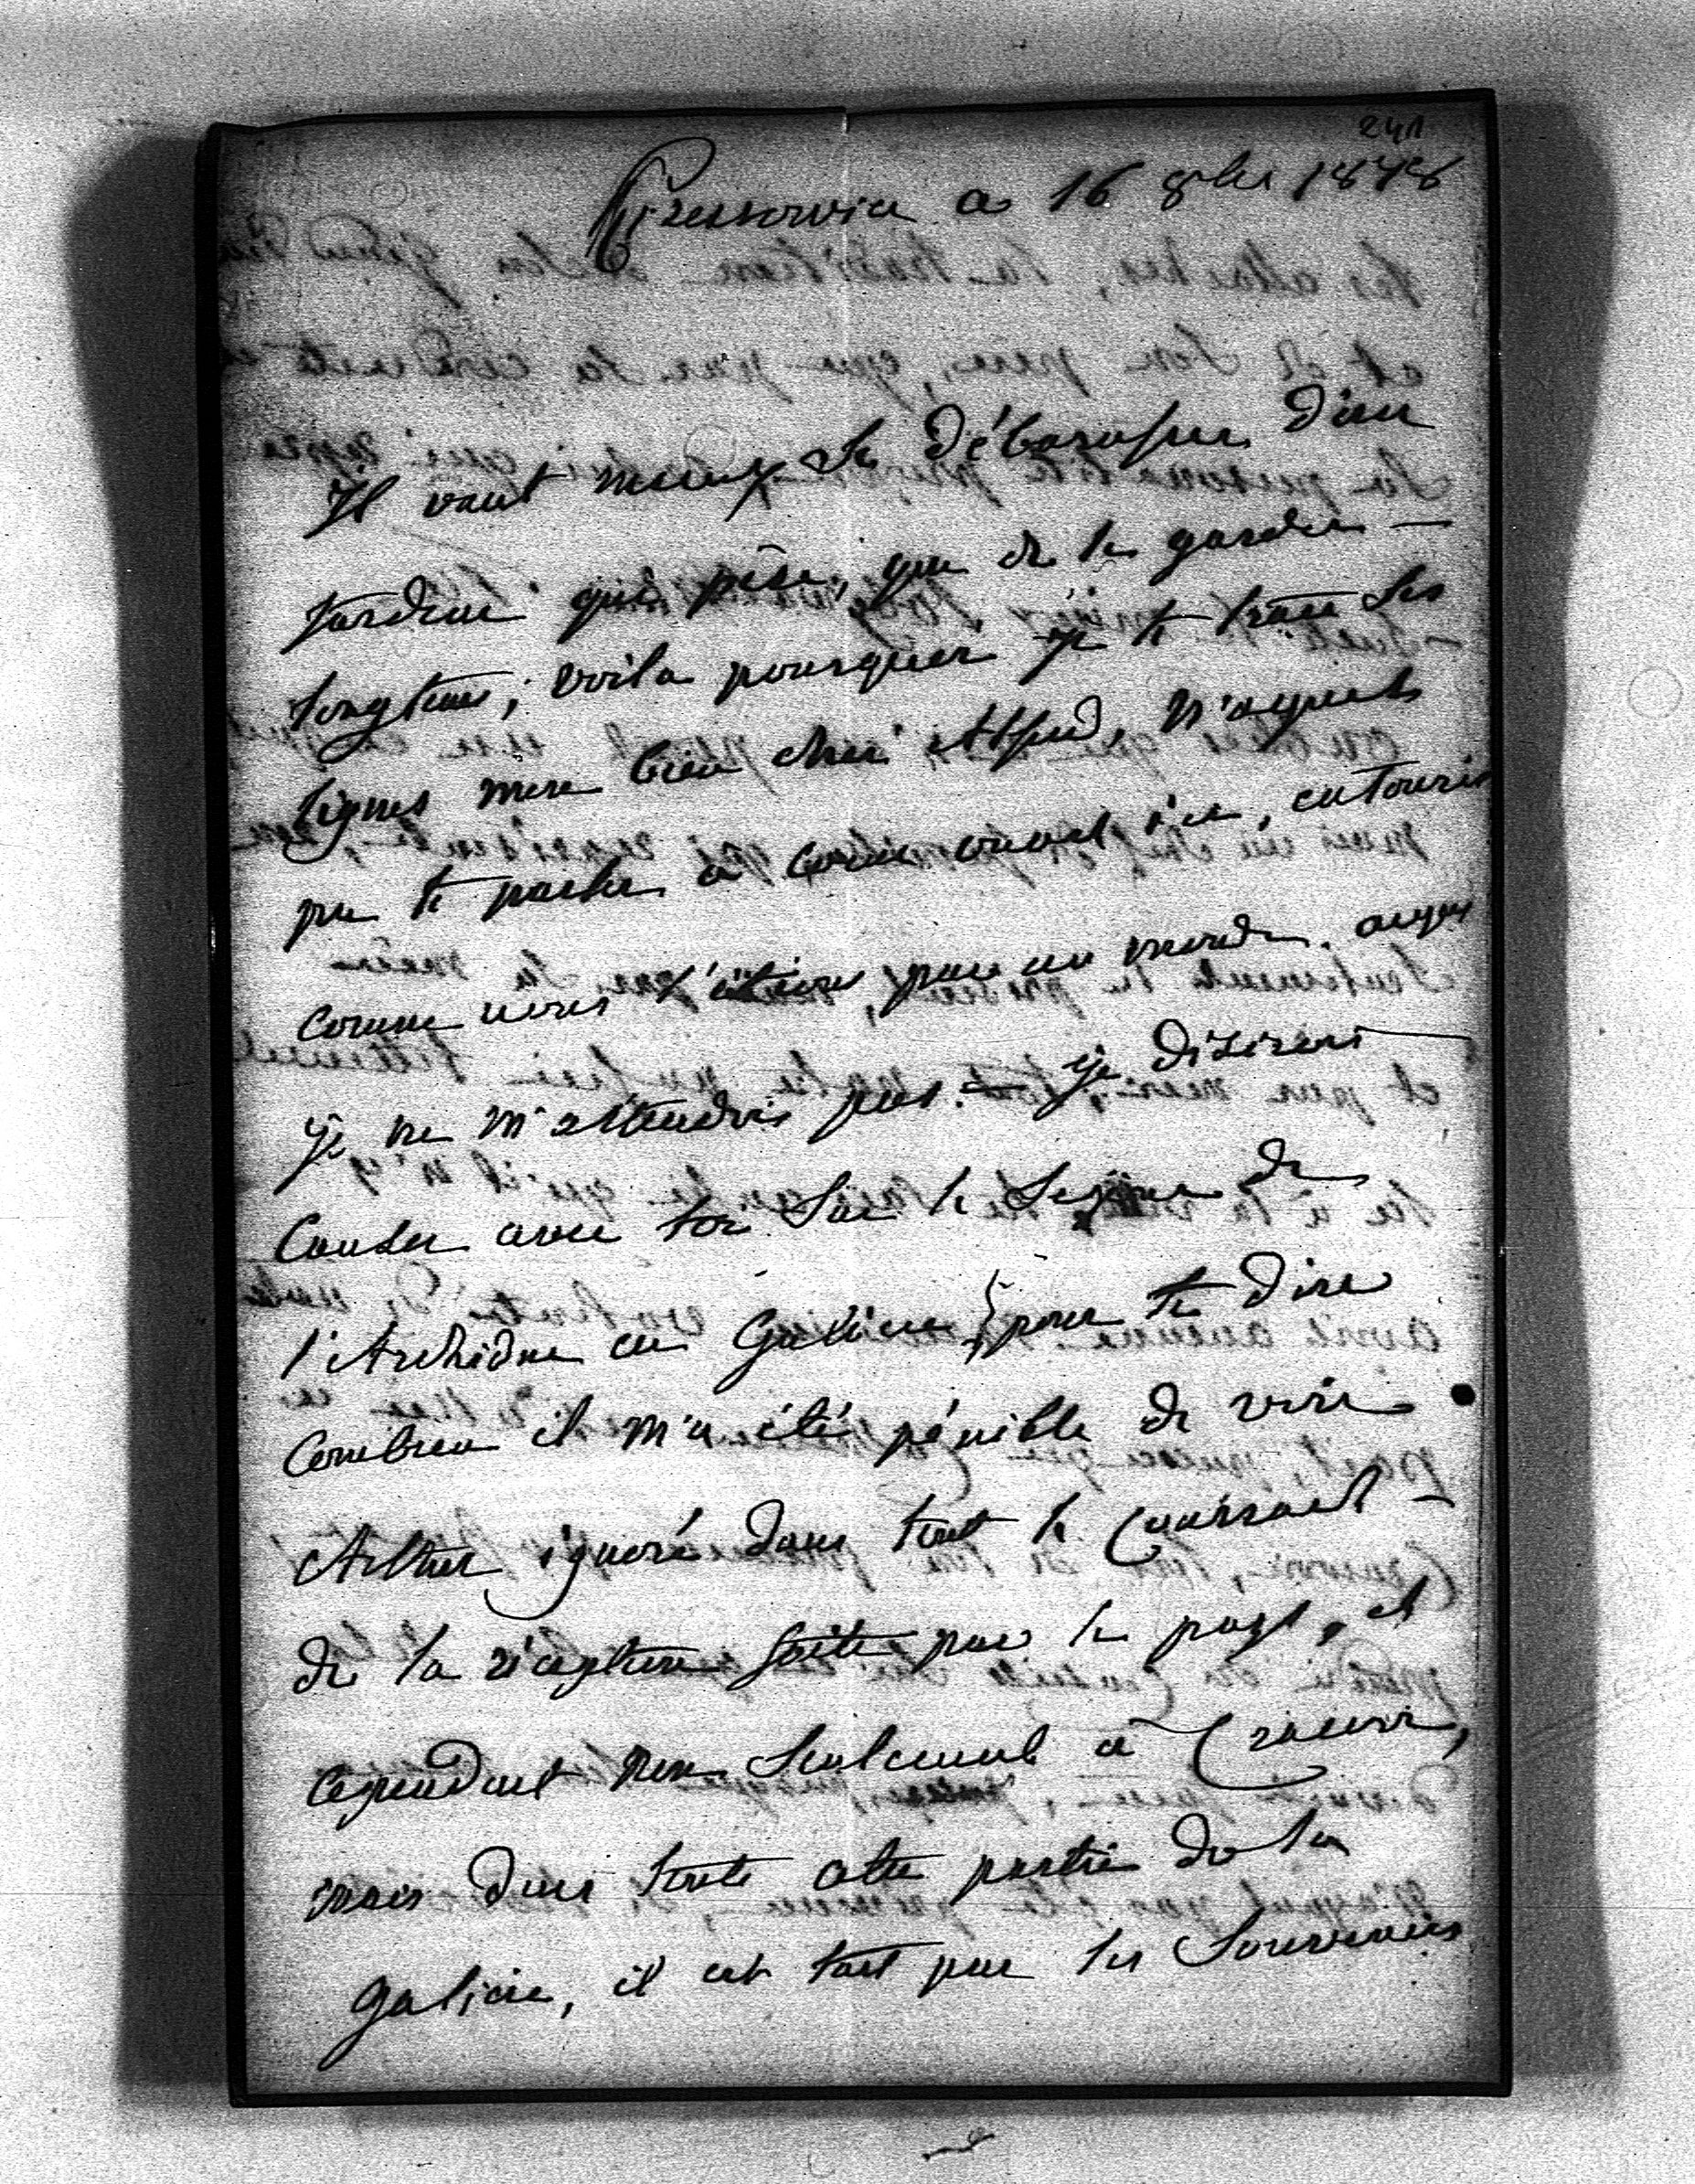 241
Krzeszowice a 16 8bre 1878
Il vaut mieux se débarasser d'un
fardeau qui pèse, que de le garder
longtems; voila pourquoi je te trace ces
lignes mon bien cher Alfred, n'ayant
pu te parler à coeur ouvert ici, entourés
comme nous l'étions par un monde, auquel
je ne m'attendois pas. — je désirois
causer avec toi sur le sejour de
l'Archiduc en Galicie, pour te dire
combien il m'a été pénible de voir
Arthur ignoré dans tout le courant
de la réception faite par le pays, et
cependant non seulement à Cracovie,
mais dans toute cette partie de la
Galicie, il est tant par les Souvenirs